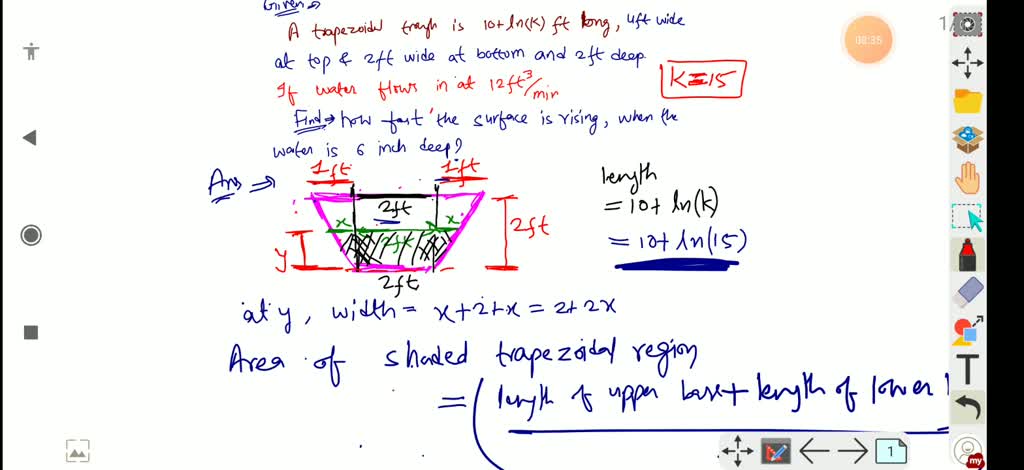 Given→
A trapezoidal trough is 10+ln(K) ft long, 4ft wide
at top & 2ft wide at bottom and 2ft deep
If water flows in at 12ft³/min
K=15
Find→ how fast the surface is rising, when the
water is 6 inch deep?
Ans ⇒
1ft
1ft
2ft
x
2ft
x
y
2ft
2ft
length
= 10+ ln(K)
= 10+ ln(15)
at y, width = x+2+x = 2+2x
Area of shaded trapezoidal region
= (length of upper base + length of lower
1/
08:35
T
1
my